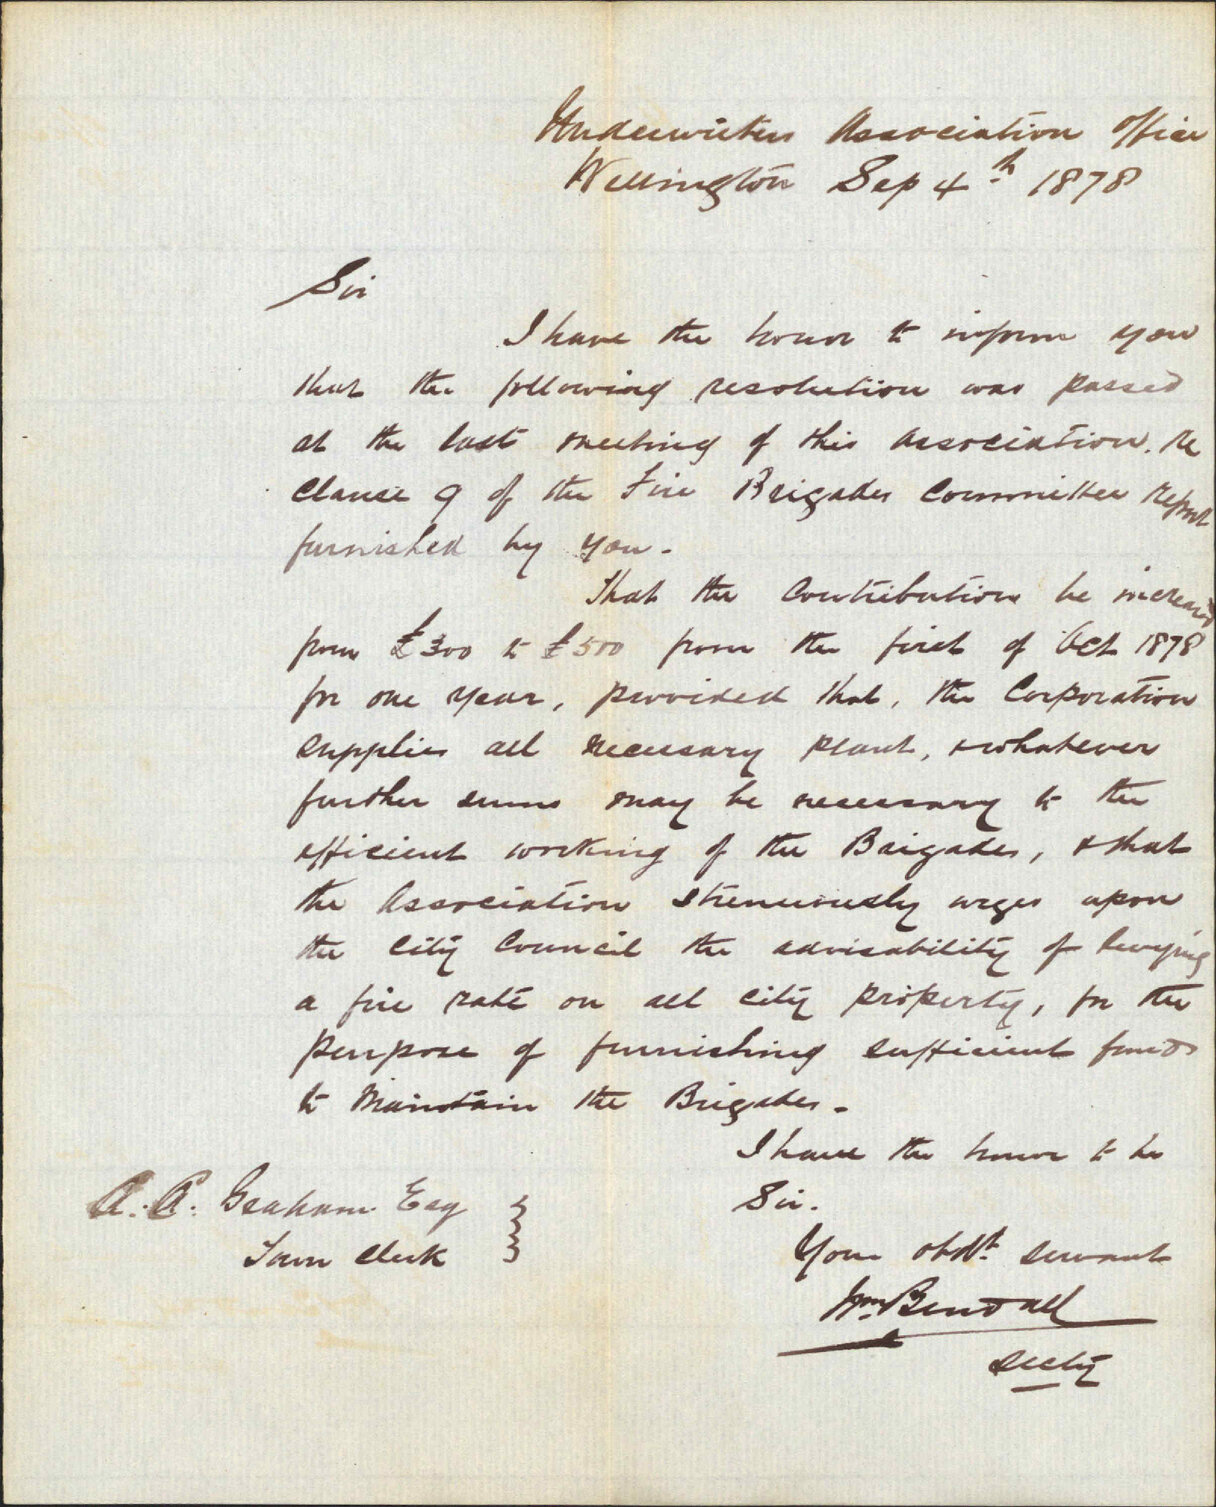 Underwriters Association Office
Wellington Sep 4th 1878
Sir
I have the honor to inform you
that the following resolution was passed
at the last meeting of this Association. re
Clause 9 of the Fire Brigades Committee report
furnished by you -
That the Contribution be increased
from £300 to £500 from the first of Oct 1878
for one year, provided that, the Corporation
supplies all necessary plant, & whatever
further sums may be necessary to the
efficient working of the Brigades, & that
the Association strenuously urges upon
the City Council the advisability of levying
a fire rate on all city property, for the
purpose of furnishing sufficient funds
to maintain the Brigades -
I have the honor to be
Sir.
Your obdt. servant
Wm Bendall
Secty
A. A. Graham Esq
Town Clerk